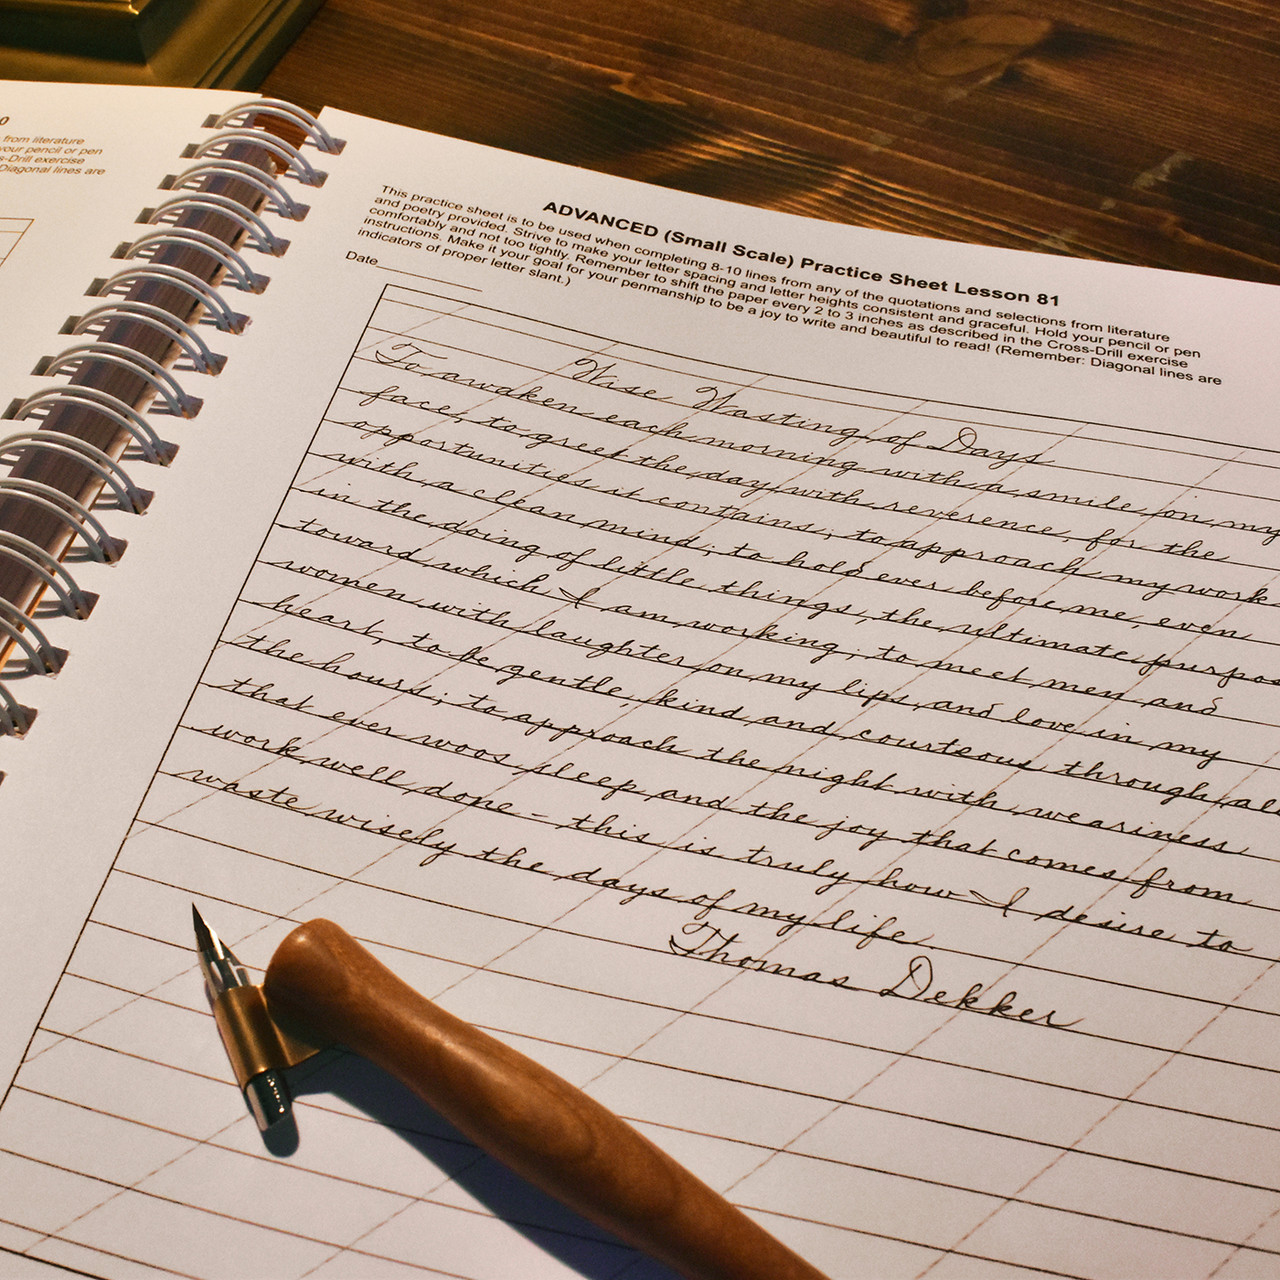 0
from literature
your pencil or pen
s-Drill exercise
Diagonal lines are
ADVANCED (Small Scale) Practice Sheet Lesson 81
This practice sheet is to be used when completing 8-10 lines from any of the quotations and selections from literature
and poetry provided. Strive to make your letter spacing and letter heights consistent and graceful. Hold your pencil or pen
comfortably and not too tightly. Remember to shift the paper every 2 to 3 inches as described in the Cross-Drill exercise
instructions. Make it your goal for your penmanship to be a joy to write and beautiful to read! (Remember: Diagonal lines are
indicators of proper letter slant.)
Date
Wise Wasting of Days
To awaken each morning with a smile on my
face, to greet the day with reverence, for the
opportunities it contains; to approach my work
with a clean mind; to hold ever before me, even
in the doing of little things, the ultimate purpos
toward which I am working; to meet men and
women with laughter on my lips, and love in my
heart, to be gentle, kind, and courteous through al
the hours; to approach the night with weariness
that ever woos sleep and the joy that comes from
work well done - this is truly how I desire to
waste wisely the days of my life.
Thomas Dekker